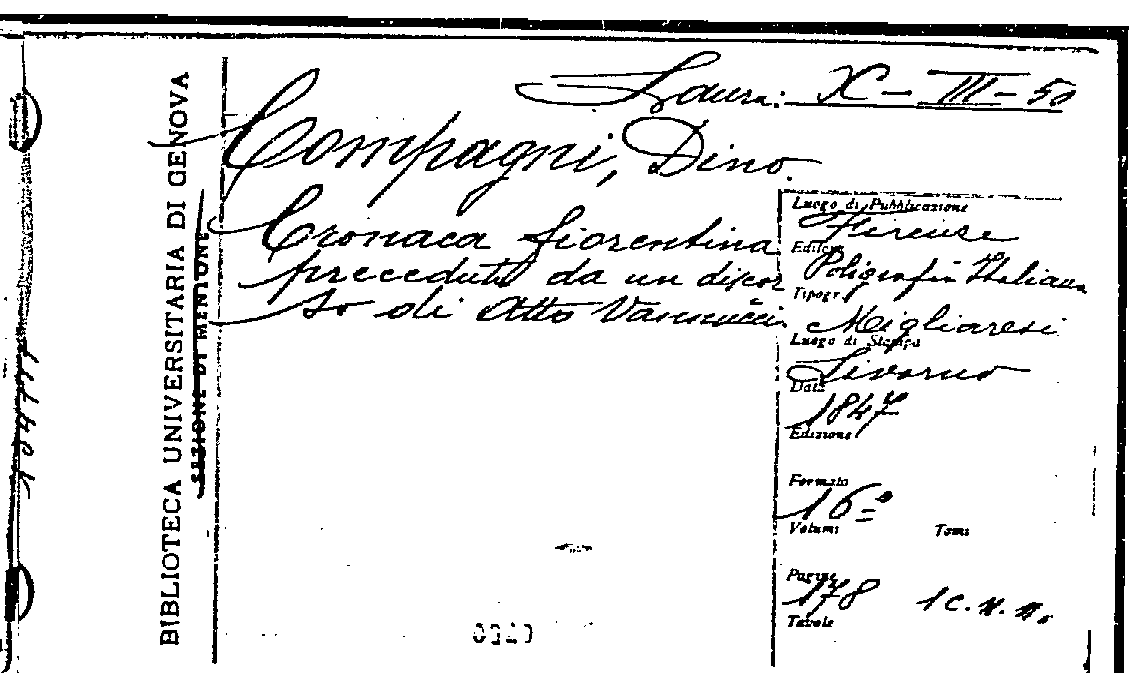 Laura: X - III - 50
Compagni, Dino.
Cronaca fiorentina
preceduta da un discor
so di Atto Vannucci
BIBLIOTECA UNIVERSITARIA DI GENOVA
SEZIONE DI MENIONE
Luogo di Pubblicazione
Firenze
Editore
Poligrafia Italiana
Tipogr.
Migliaresi
Luogo di Stampa
Livorno
Data
1847
Edizione
Formato
16º
Volumi Tomi
Pagine
178 1 c. n. n.
Tavole